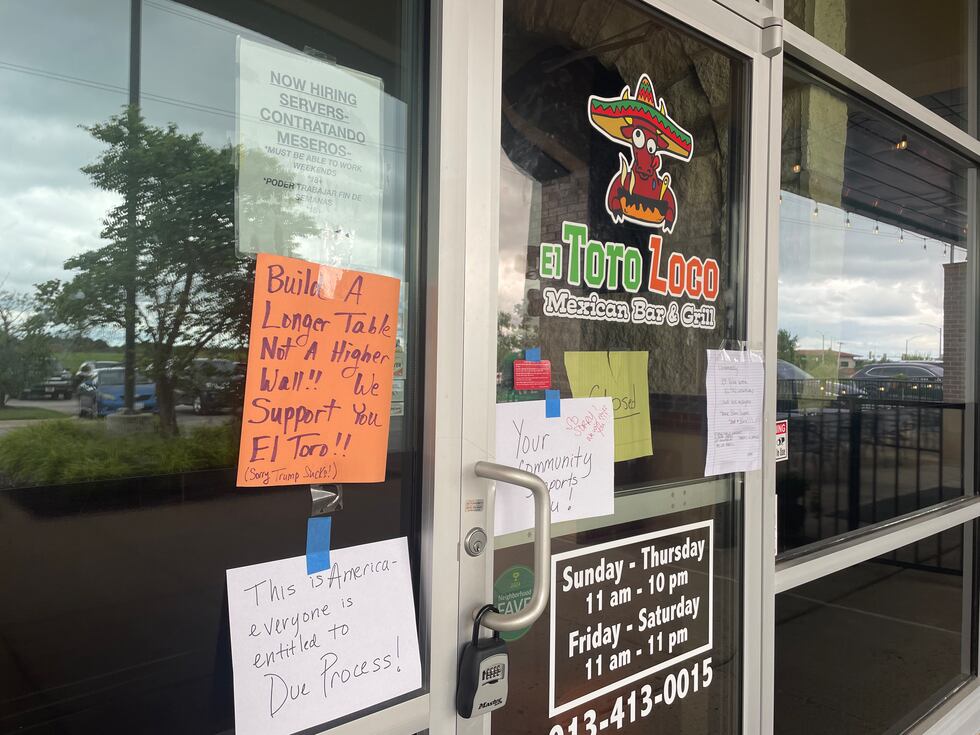 NOW HIRING
SERVERS-
CONTRATANDO
MESEROS-
*MUST BE ABLE TO WORK
WEEKENDS
*18+
*PODER TRABAJAR FIN DE
SEMANAS
Build A
Longer Table
Not A Higher
Wall!! We
Support You
El Toro!!
(Sorry Trump Sucks!)
This is America-
everyone is
entitled to
Due Process!
El Toro Loco
Mexican Bar & Grill
Closed
Your
community
SO
SORRY!
Neighborhood
FAVE
Sunday - Thursday
11 am - 10 pm
Friday - Saturday
11 am - 11 pm
913-413-0015
Master